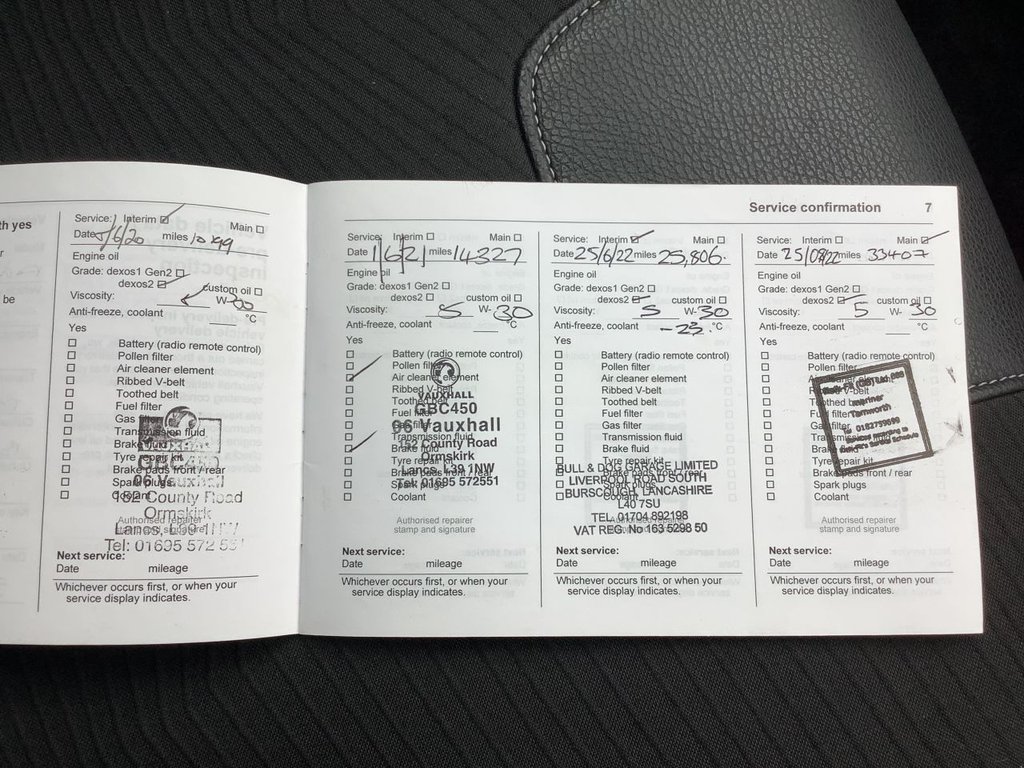 th yes
r
be
Service: Interim Main
Date 5/6/20 miles
Engine oil
Grade: dexos1 Gen2
dexos2 custom oil
Viscosity: W-
Anti-freeze, coolant °C
Yes
Battery (radio remote control)
Pollen filter
Air cleaner element
Ribbed V-belt
Toothed belt
Fuel filter
Gas filter
Transmission fluid
Brake fluid
Tyre repair kit
Brake pads front / rear
Spark plugs
Coolant
06 Vauxhall
152 County Road
Ormskirk
Lancs, L39 1NW
Tel: 01695 572 551
Authorised repairer
stamp and signature
Next service:
Date mileage
Whichever occurs first, or when your
service display indicates.
Service confirmation 7
Service: Interim Main
Date 1/6/21 miles 14327
Engine oil
Grade: dexos1 Gen2
dexos2 custom oil
Viscosity: 5 W- 30
Anti-freeze, coolant °C
Yes
Battery (radio remote control)
Pollen filter
Air cleaner element
Ribbed V-belt
Toothed belt
Fuel filter
Gas filter
Transmission fluid
Brake fluid
Tyre repair kit
Brake pads front / rear
Spark plugs
Coolant
VAUXHALL
BC450
Vauxhall
152 County Road
Ormskirk
Lancs, L39 1NW
Tel: 01695 572551
Authorised repairer
stamp and signature
Next service:
Date mileage
Whichever occurs first, or when your
service display indicates.
Service: Interim Main
Date 25/6/22 miles 25,806.
Engine oil
Grade: dexos1 Gen2
dexos2 custom oil
Viscosity: 5 W- 30
Anti-freeze, coolant -23 °C
Yes
Battery (radio remote control)
Pollen filter
Air cleaner element
Ribbed V-belt
Toothed belt
Fuel filter
Gas filter
Transmission fluid
Brake fluid
Tyre repair kit
Brake pads front / rear
Spark plugs
Coolant
BULL & DOG GARAGE LIMITED
LIVERPOOL ROAD SOUTH
BURSCOUGH, LANCASHIRE
L40 7SU
TEL: 01704 892198
VAT REG. No 163 5298 50
Authorised repairer
Next service:
Date mileage
Whichever occurs first, or when your
service display indicates.
Service: Interim Main
Date miles 33407
Engine oil
Grade: dexos1 Gen2
dexos2 custom oil
Viscosity: 5 W- 30
Anti-freeze, coolant °C
Yes
Battery (radio remote control)
Pollen filter
Air cleaner element
Ribbed V-belt
Toothed belt
Fuel filter
Gas filter
Transmission fluid
Brake fluid
Tyre repair kit
Brake pads front / rear
Spark plugs
Coolant
Tamworth
Authorised repairer
stamp and signature
Next service:
Date mileage
Whichever occurs first, or when your
service display indicates.